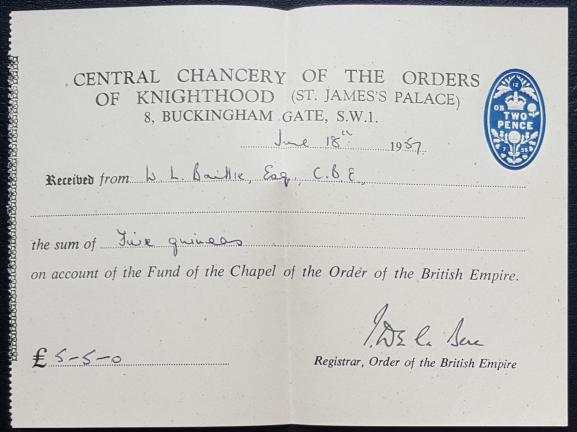 CENTRAL CHANCERY OF THE ORDERS
OF KNIGHTHOOD (ST. JAMES'S PALACE)
8, BUCKINGHAM GATE, S.W.1.
TWO
PENCE
June 18th 1957
Received from W. L. Baillie, Esq, C.B.E,
the sum of Five guineas
on account of the Fund of the Chapel of the Order of the British Empire.
£ 5-5-0
Registrar, Order of the British Empire